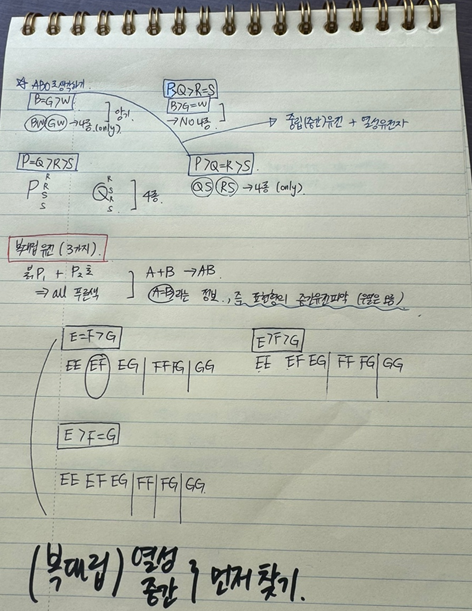 ☆ ABO
B=G>W
BW GW → 4종 (only)
암기
Q>R=S
B>G=W
→ NO 4종
→ 중립(중간)유전 + 열성유전자
P=Q>R>S
P R R S S
Q R S R S
4종
P>Q=R>S
QS RS → 4종 (only)
복대립 유전 (3가지)
P₁ + P₂
⇒ all 푸른색
A+B → AB
A=B라는 정보, 즉 표현형의 중간유전파악
E=F>G
EE EF EG | FF FG | GG
E>F>G
EE EF EG | FF FG | GG
E>F=G
EE EF EG | FF | FG | GG
(복대립) 열성
중간
먼저 찾기.